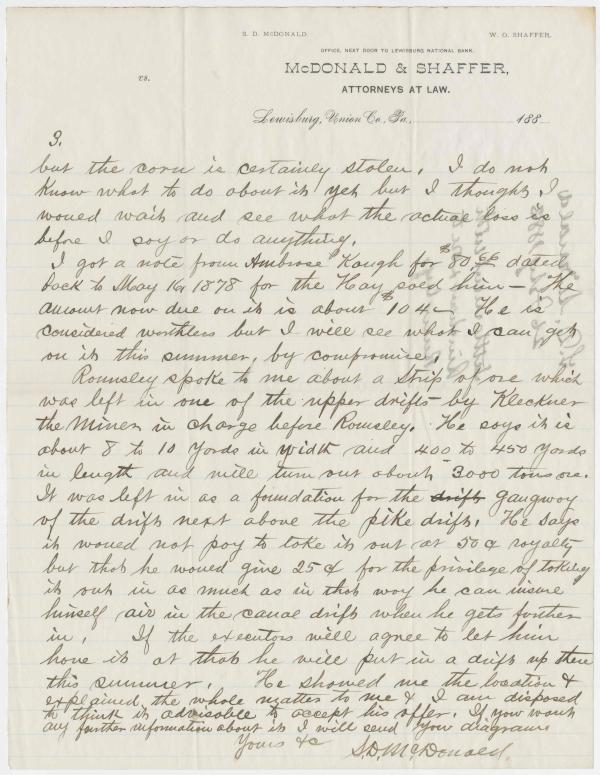 S. D. McDONALD. W. O. SHAFFER.
OFFICE, NEXT DOOR TO LEWISBURG NATIONAL BANK.
vs. McDONALD & SHAFFER,
ATTORNEYS AT LAW.
Lewisburg, Union Co., Pa., 188
3.
but the corn is certainly stolen. I do not
know what to do about it yet but I thought I
would wait and see what the actual loss is
before I say or do anything.
I got a note from Ambrose Kough for $80.66 dated
back to May 16, 1878 for the Hay sold him - The
amount now due on it is about $104 - He is
considered worthless but I will see what I can get
on it this summer, by compromise.
Romsley spoke to me about a strip of ore which
was left in one of the upper drifts - by Kleckner
the Miner in charge before Romsley. He says it is
about 8 to 10 yards in width and 400 to 450 yards
in length and will turn out about 3000 tons ore.
It was left in as a foundation for the drift gangway
of the drift next above the pike drift. He says
it would not pay to take it out at 50¢ royalty
but that he would give 25¢ for the privilege of taking
it out in as much as in that way he can insure
himself air in the canal drift when he gets further
in. If the executors will agree to let him
have it at that he will put in a drift up there
this summer. He showed me the location &
explained the whole matter to me & I am disposed
to think it advisable to accept his offer. If you want
any further information about it I will send you diagram
Yours &c S.D. McDonald.